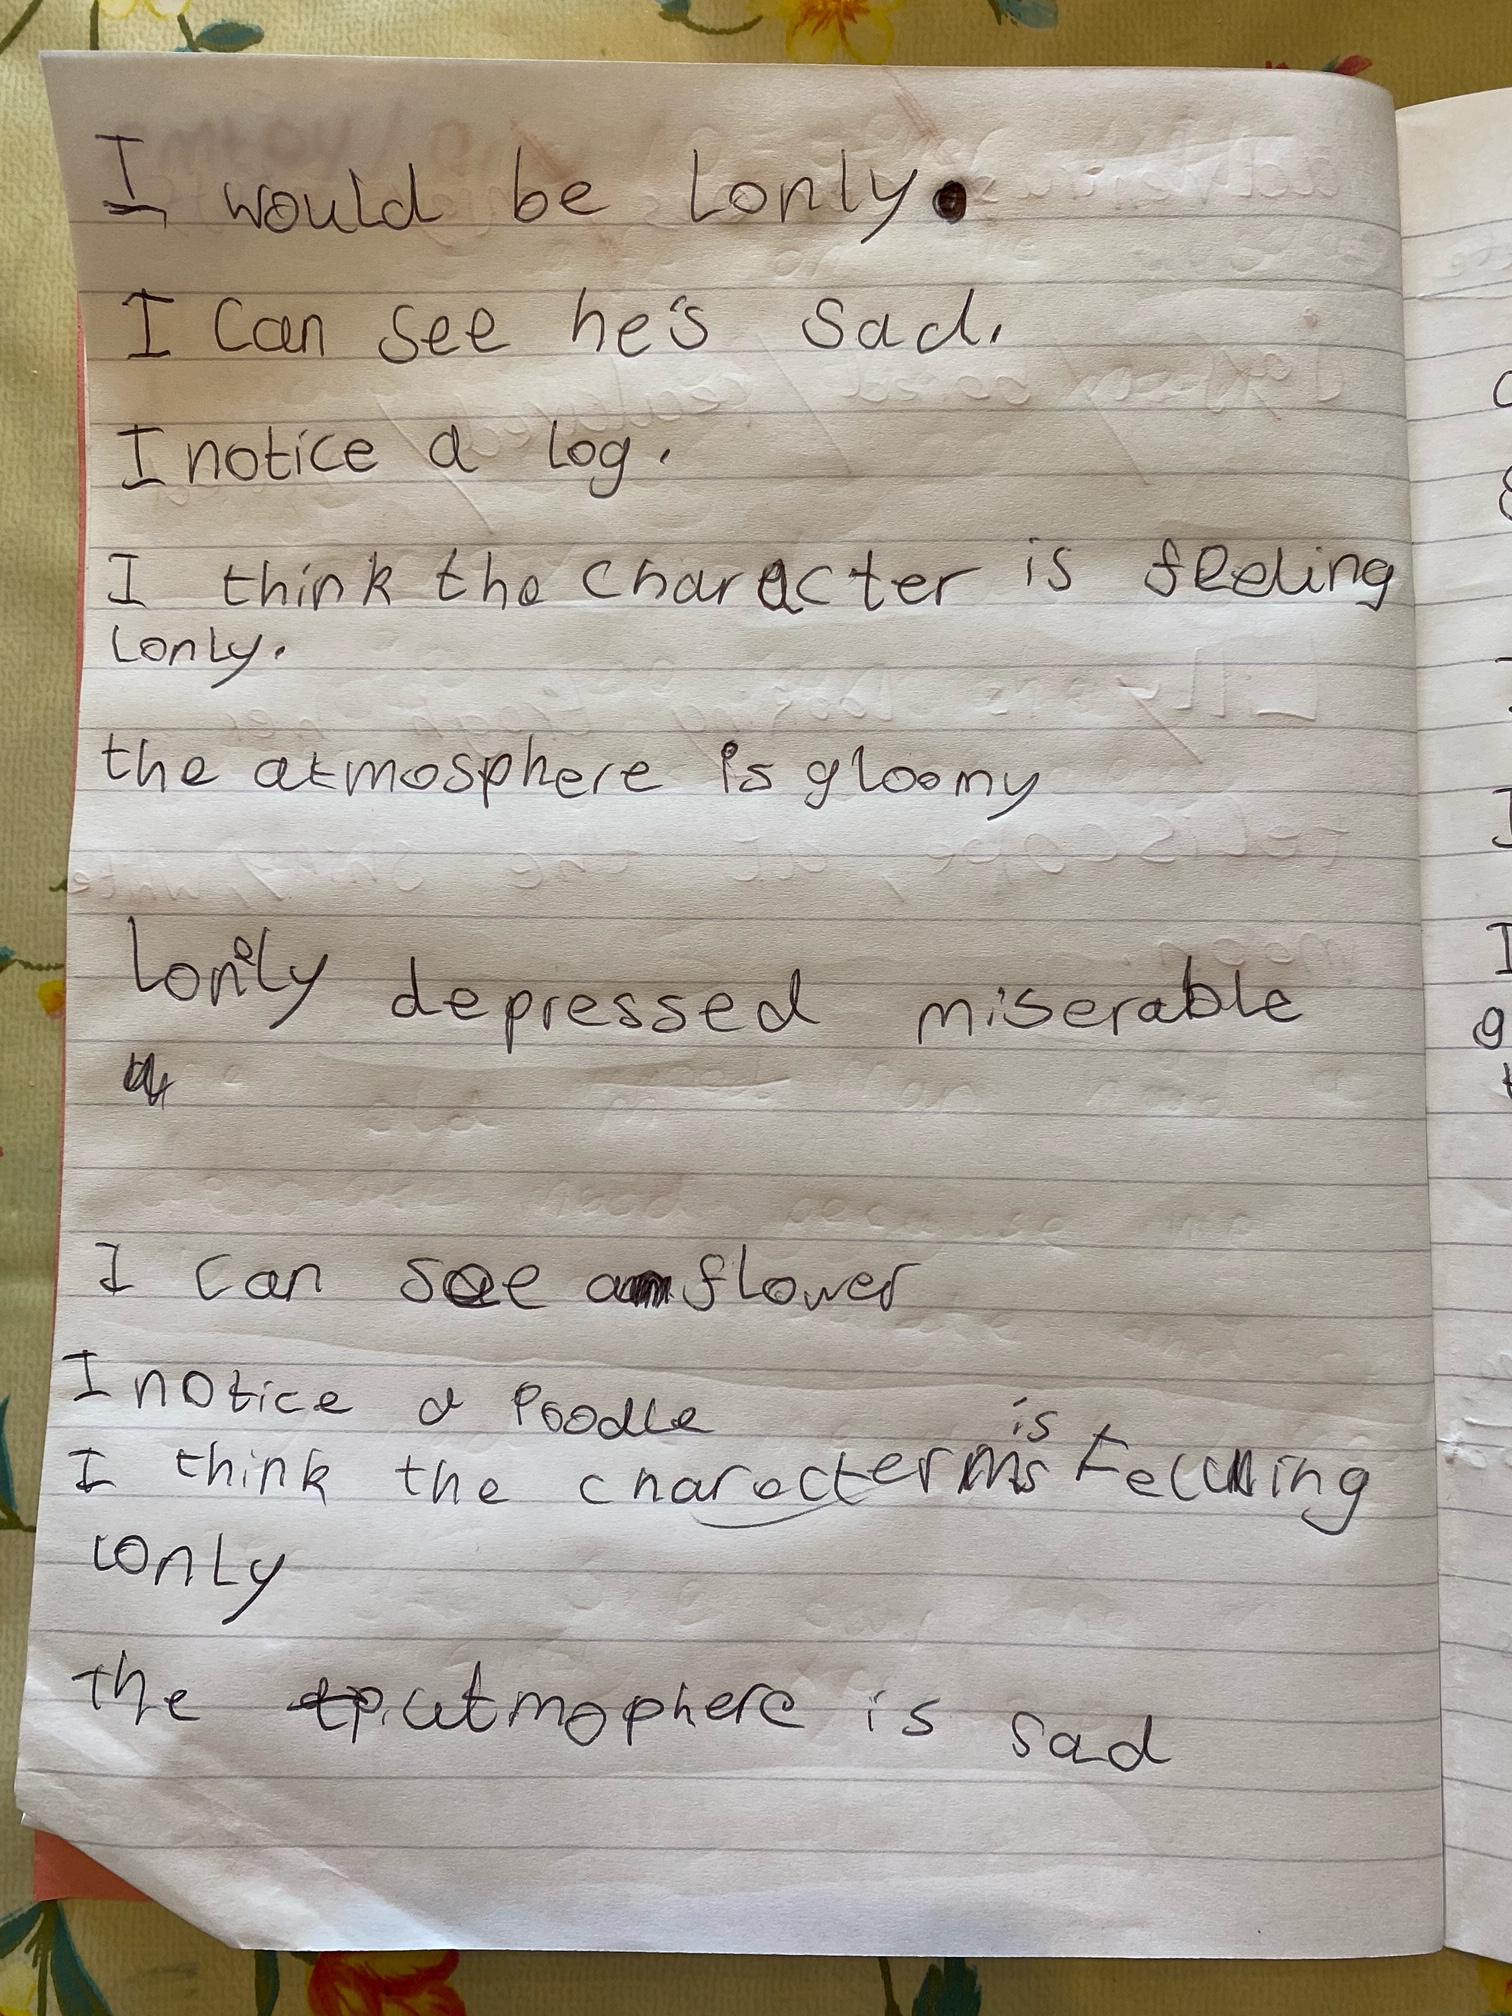 I would be lonly.
I can see he's sad.
I notice a log.
I think the character is feeling
lonly.
the atmosphere is gloomy
lonely depressed miserable
I can see a flower
I notice a Poodle
I think the character is feeling
lonly
the atmophere is sad